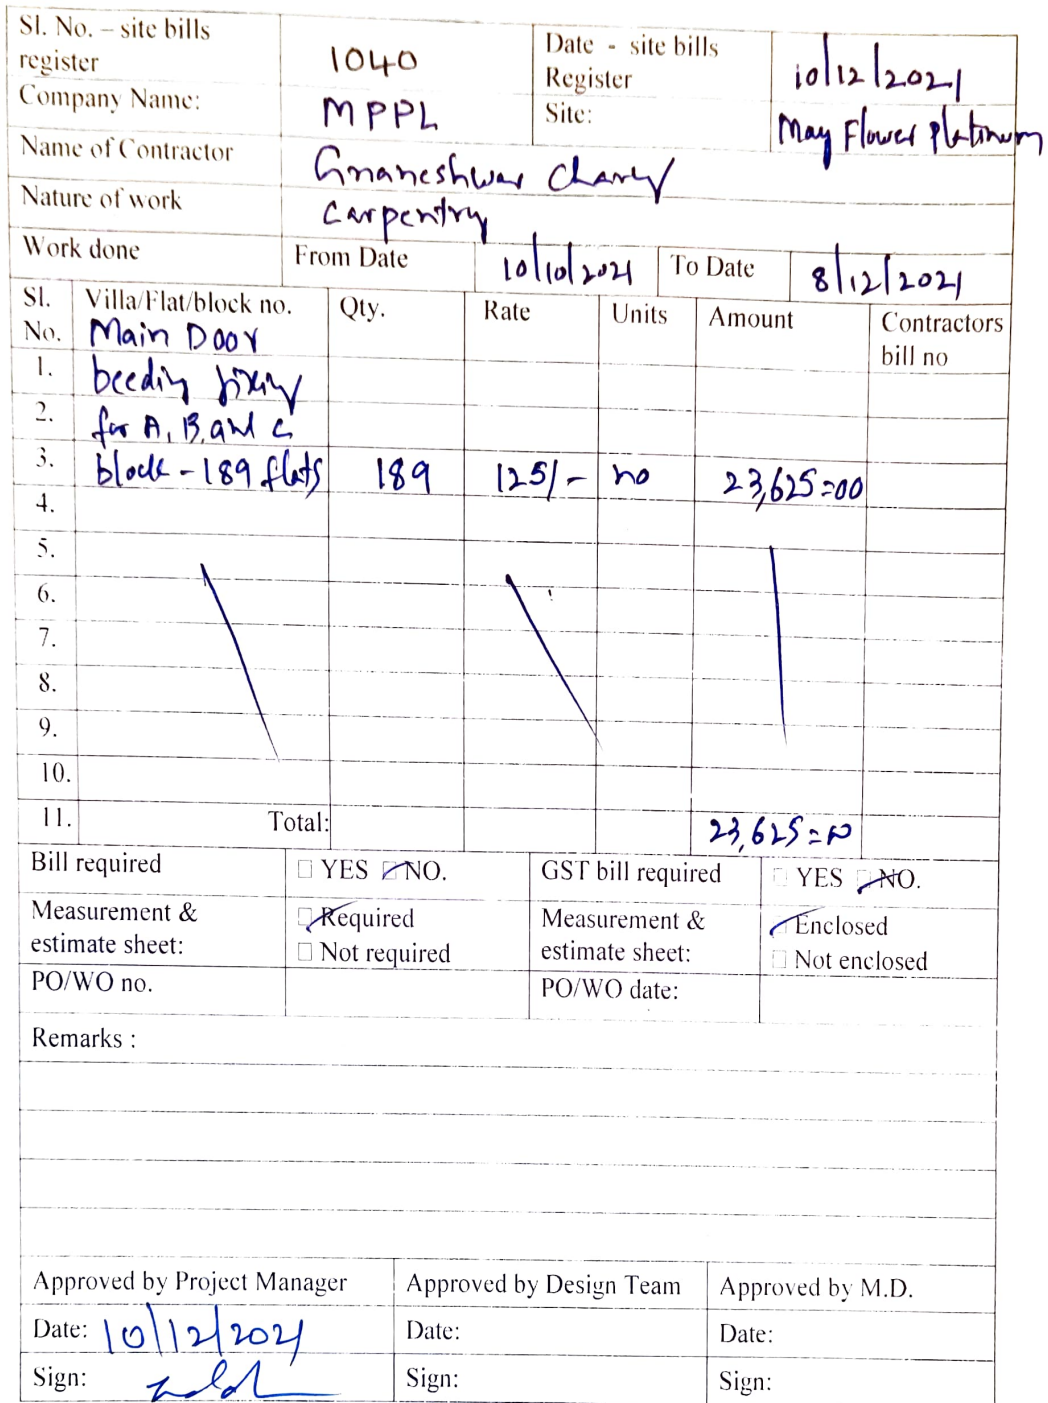 Sl. No. – site bills register 1040 Date - site bills Register 10/12/2021
Company Name: MPPL Site: May Flower Platinum
Name of Contractor Gnaneshwar Chary
Nature of work Carpentry
Work done From Date 10/10/2021 To Date 8/12/2021
Sl. No. Villa/Flat/block no. Qty. Rate Units Amount Contractors bill no
Main Door
1. beeding fixing
2. for A, B, and C
3. block - 189 flats 189 125/- no 23,625=00
4.
5.
6.
7.
8.
9.
10.
11. Total: 23,625=00
Bill required YES NO. GST bill required YES NO.
Measurement & estimate sheet: Required Not required Measurement & estimate sheet: Enclosed Not enclosed
PO/WO no. PO/WO date:
Remarks :
Approved by Project Manager Approved by Design Team Approved by M.D.
Date: 10/12/2021 Date: Date:
Sign: Sign: Sign: